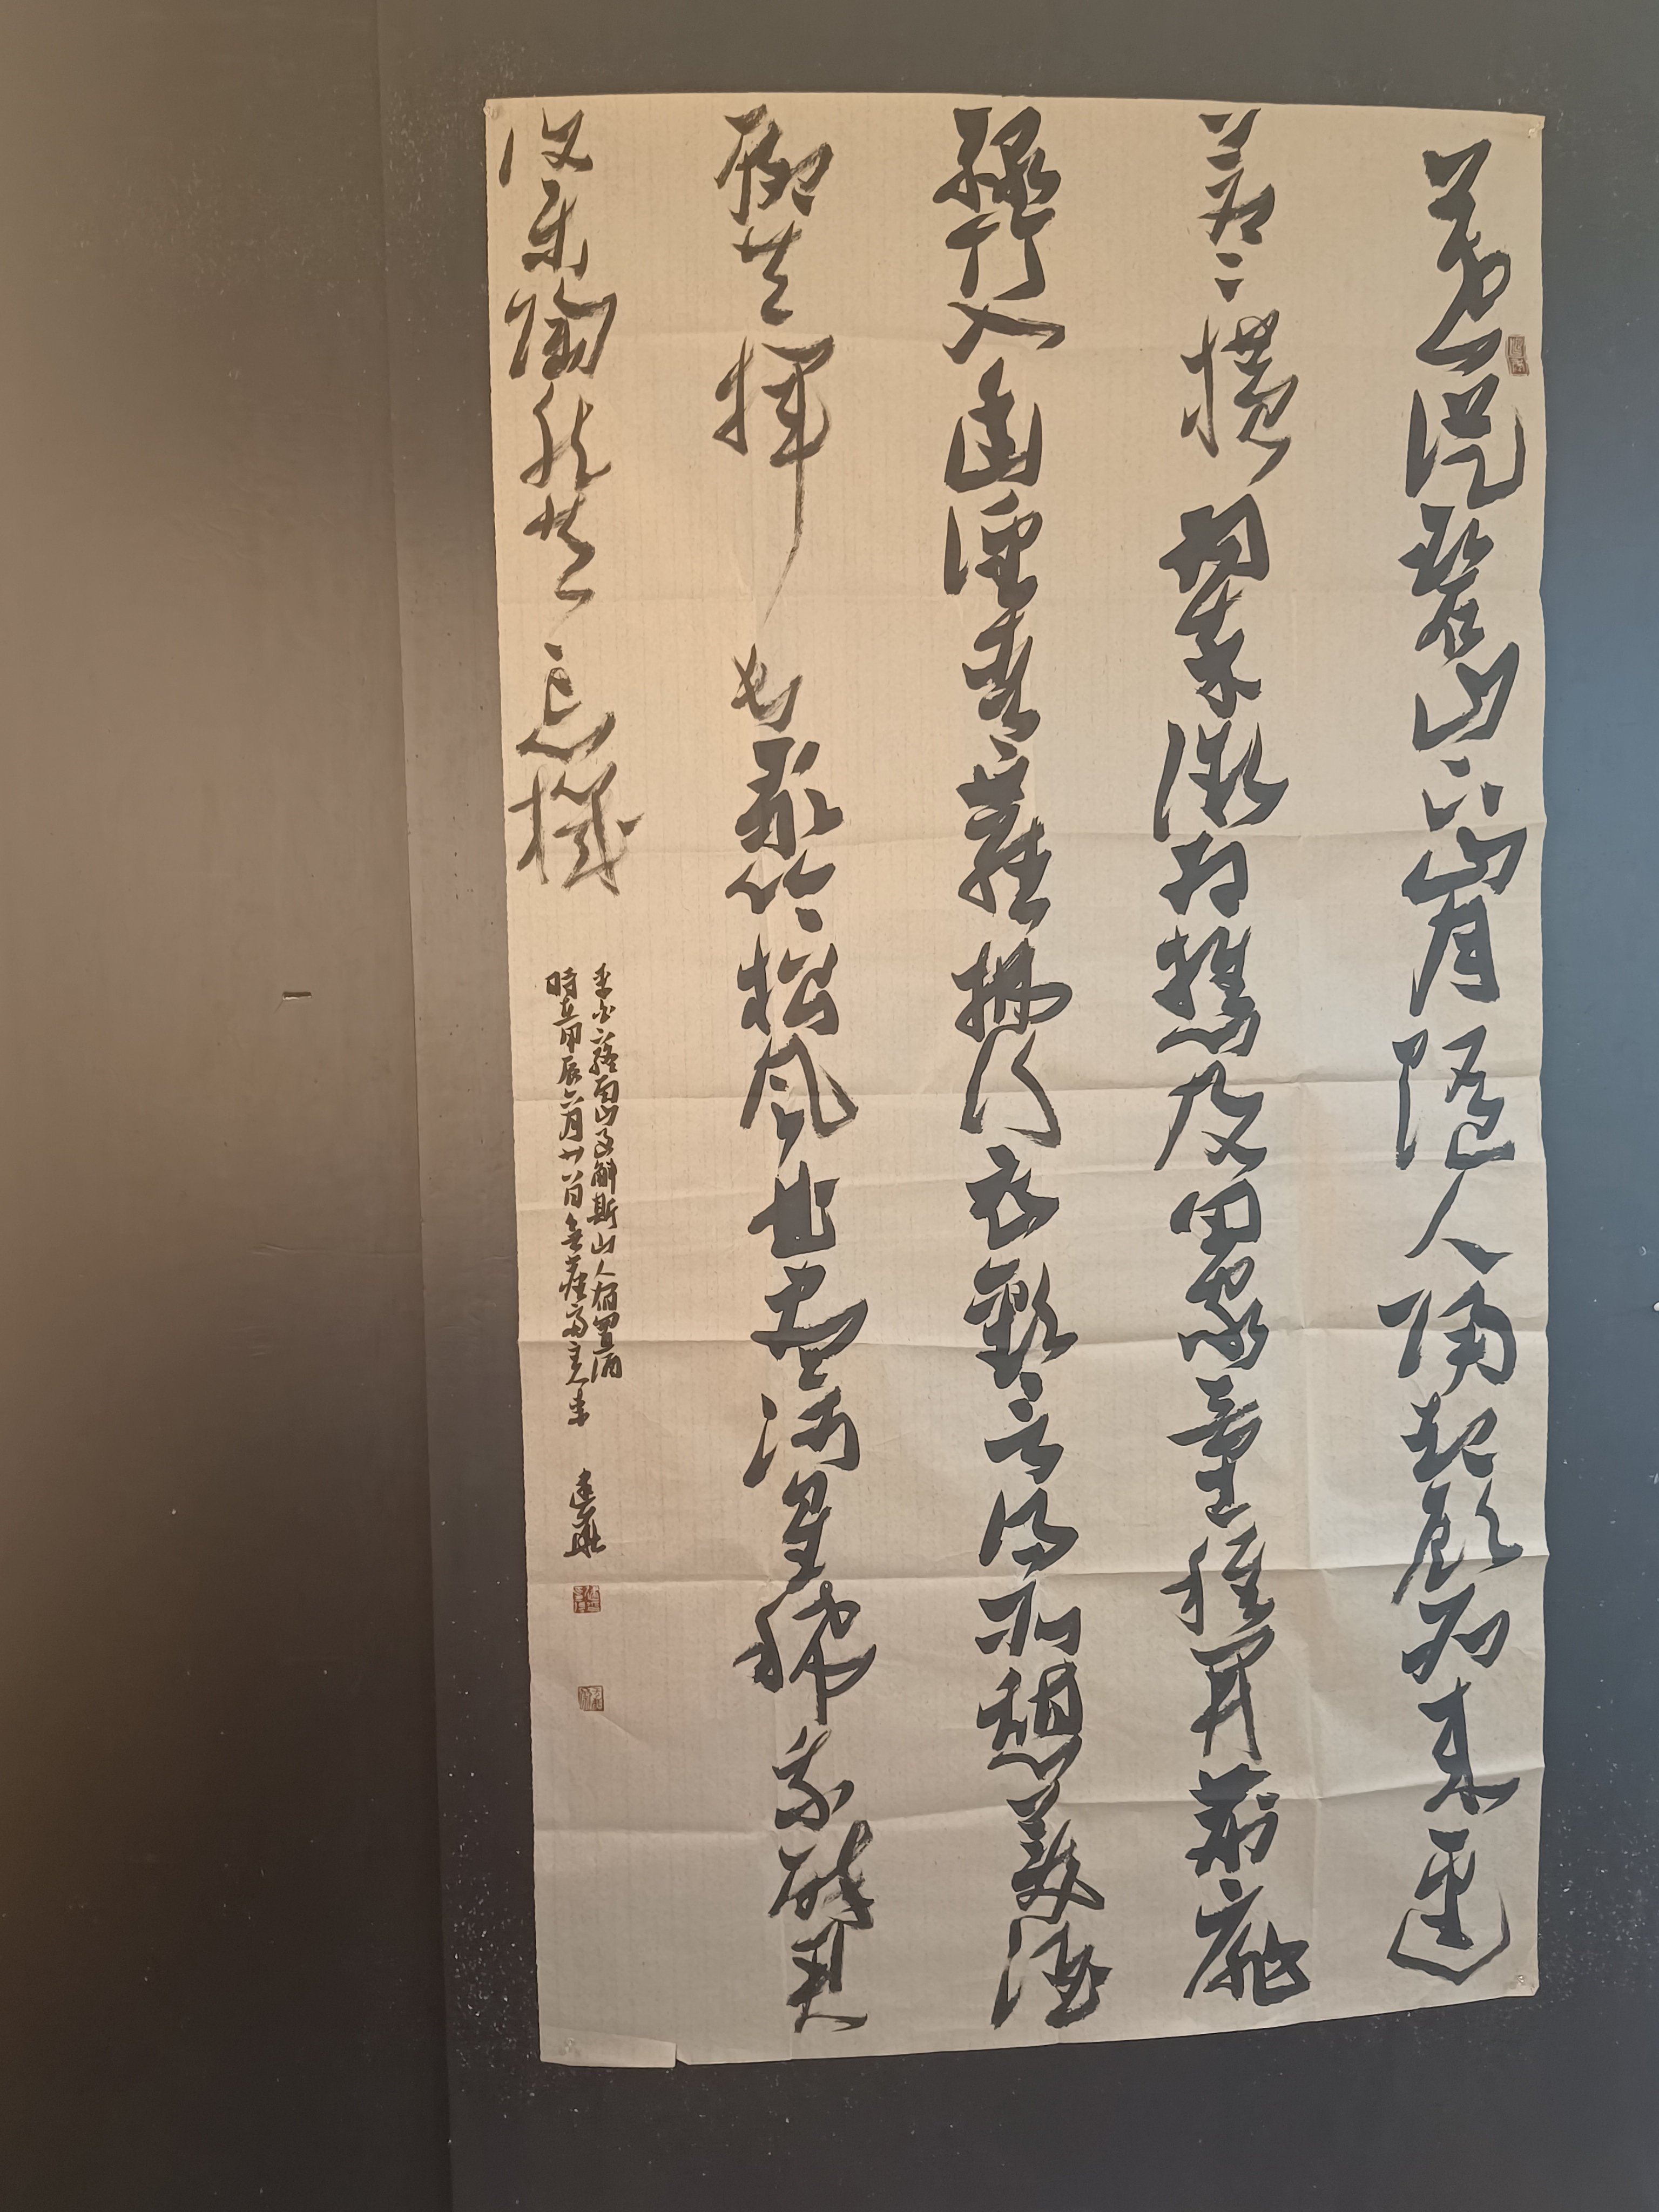 暮從碧山下山月隨人歸却顧所來逕
蒼〻橫翠微相攜及田家童稚開荊扉
綠竹入幽徑青蘿拂行衣歡言得所憩美酒
聊共揮長歌吟松風曲盡河星稀我醉君
復樂陶然共忘機
李白下終南山過斛斯山人宿置酒
時在甲辰六月廿八日